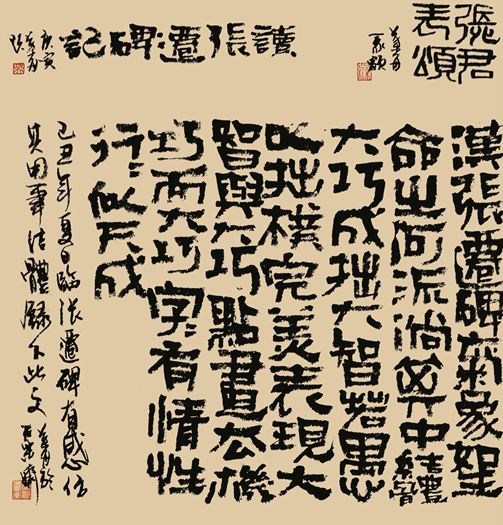 張君
表頌
讀張遷碑記
庚寅
漢張遷碑大氣象
命之河流淌 中體
大巧成拙大智若愚
以拙樸完美表現大
智與大巧點畫在機
巧而大巧字字有情性
行行似天成
己丑年夏日臨張遷碑有感仿
其用筆結體錄下此文